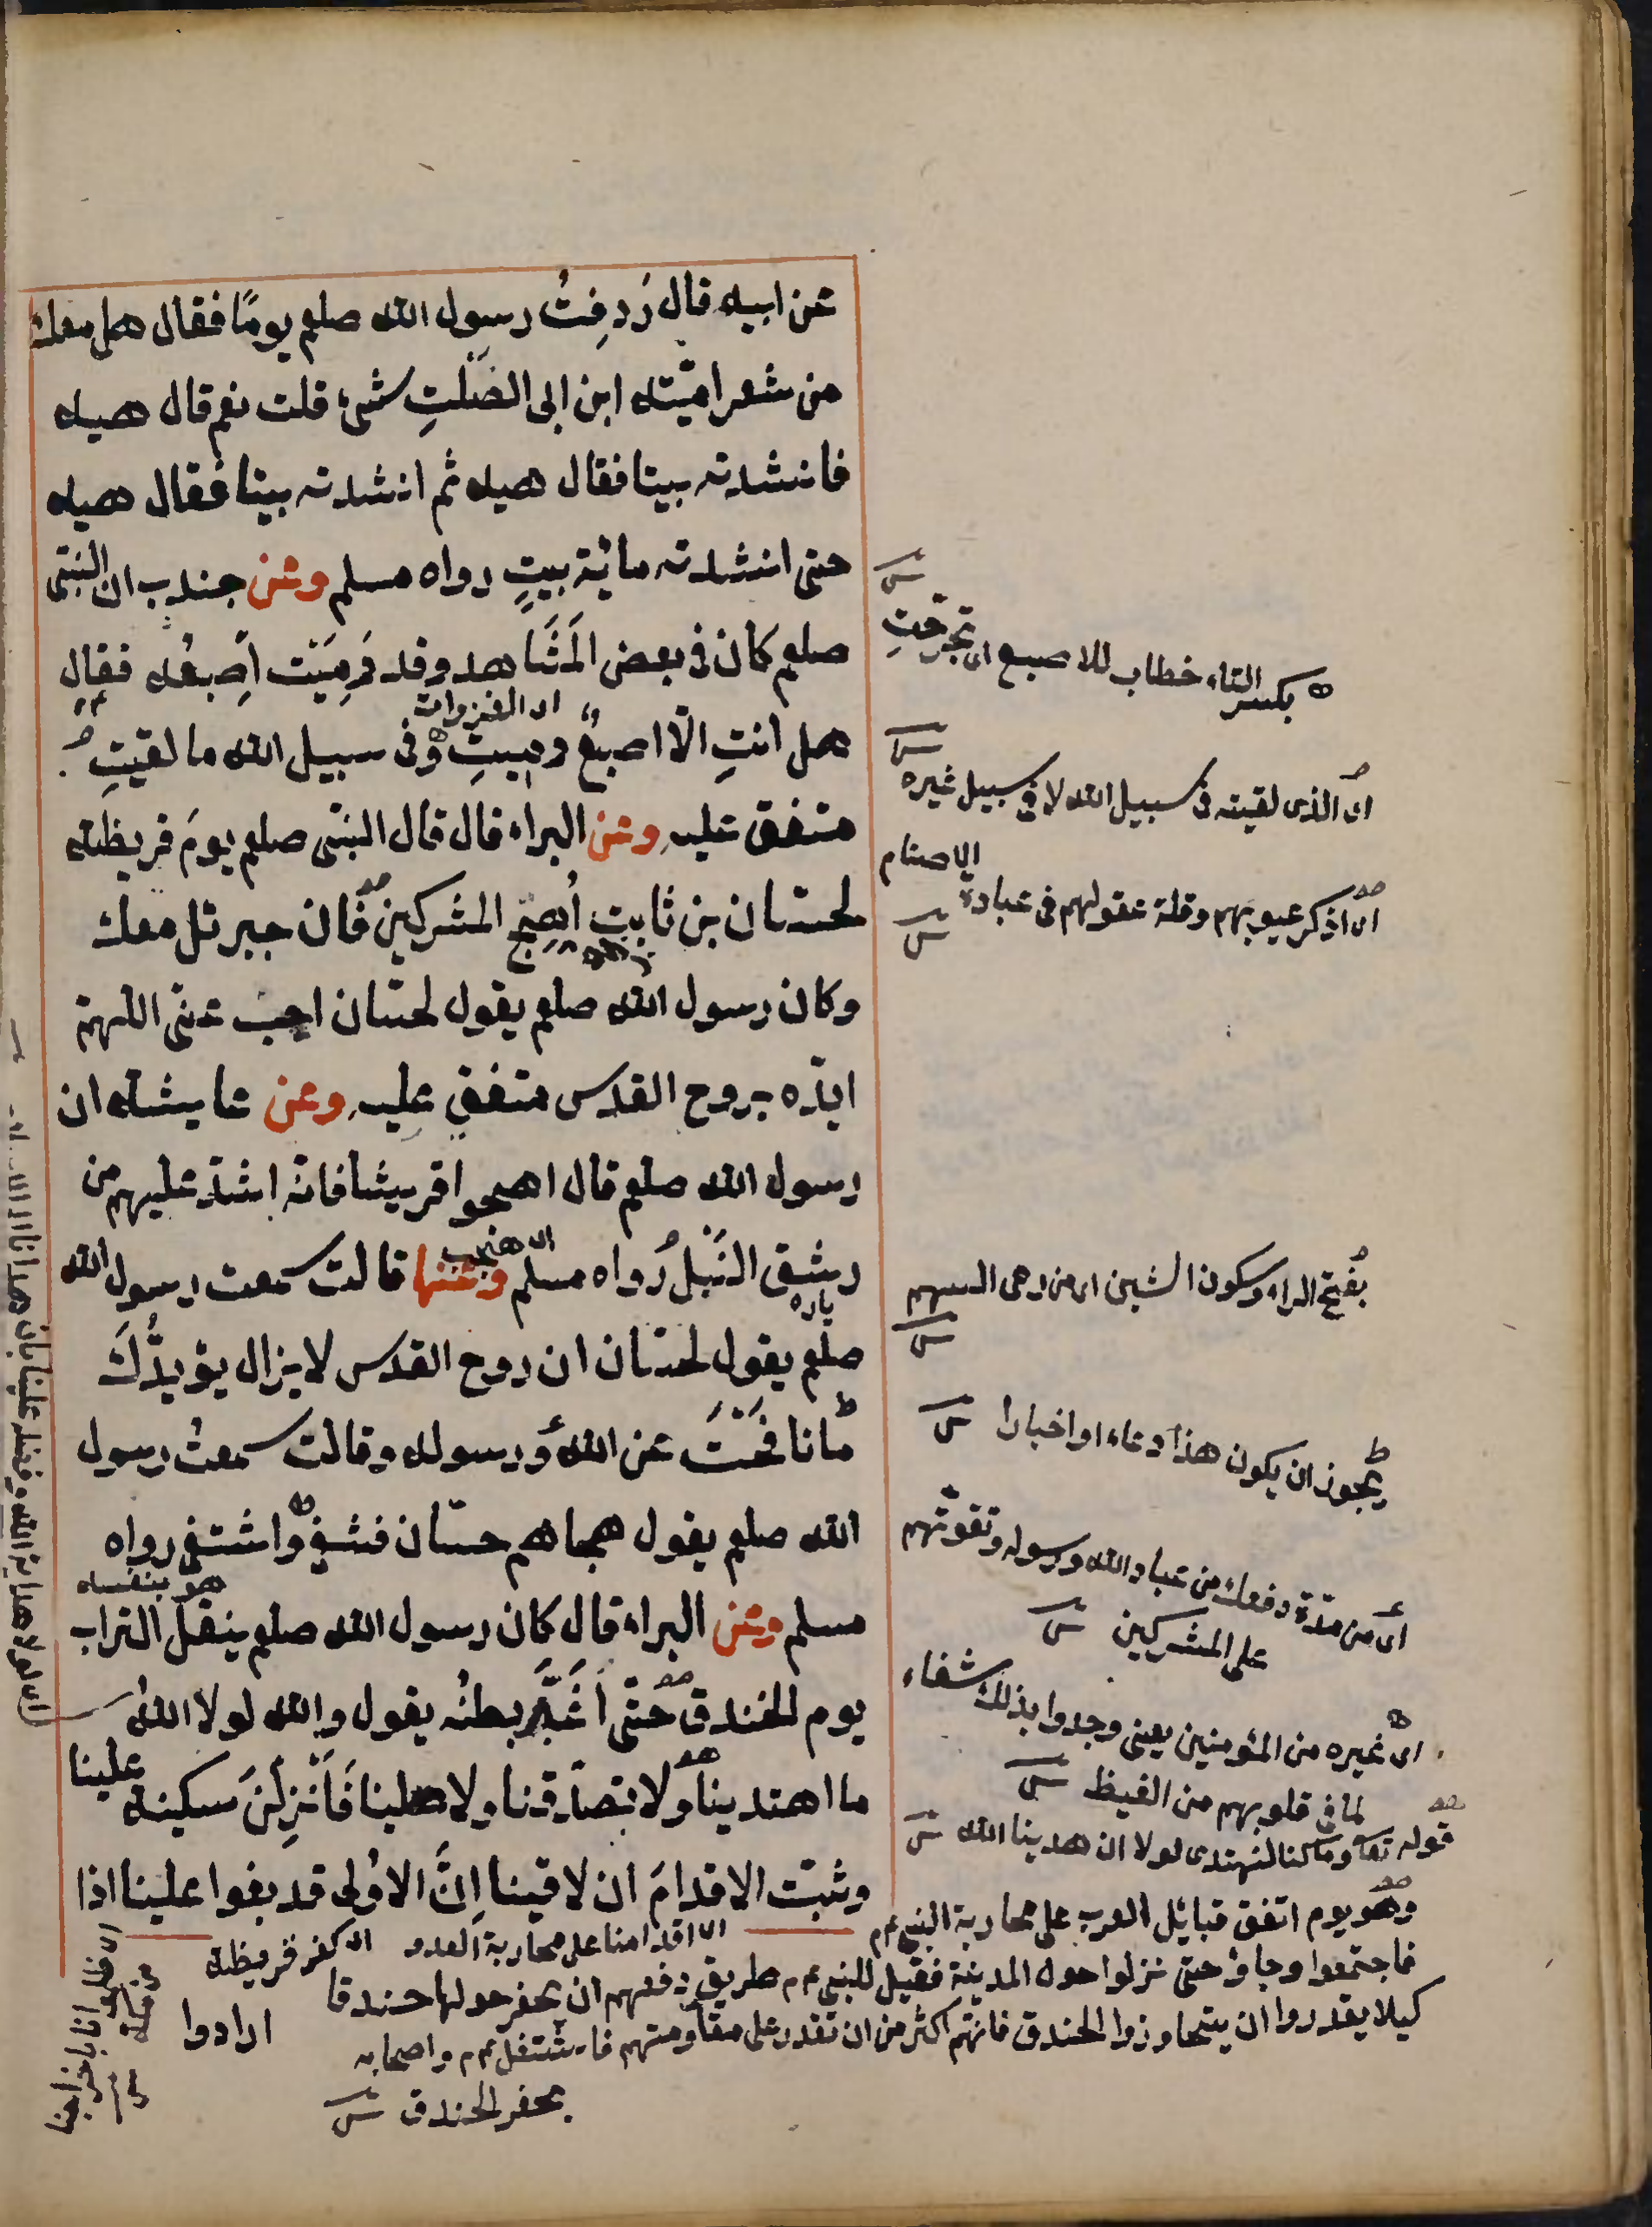 عن ابيه قال رَدِفتُ رسول الله صلعم يومًا فقال هل معك
من شعر اميّته ابن ابى الصَّلتِ شئ قلت نعم قال هيه
فانشدته بيتا فقال هيه ثم انشدته بيتا فقال هيه
حتى انشدته مائة بيتٍ رواه مسلم وعن جندب ان النبّى
صلعم كان فى بعض المَشَاهد وقد دَمِيَت اِصبعُه فقال
اى الغزوات
هل انتِ الّا اصبعٌ دميتِ وفى سبيل الله ما لقيتِ
متفق عليه وعن البراء قال قال النبّى صلعم يومَ قريظة
لحسّان بن ثابت اُهجُ المشركين فان جبرئل معك
وكان رسول الله صلعم يقول لحسّان اجب عنّى اللهمّ
ايّده بروح القدس متفق عليه وعن عايشة ان
رسول الله صلعم قال اهجوا قريشا فانه اشدّ عليهم من
رشق النَّبل رواه مسلم وعنها قالت سمعت رسول الله
صلعم يقول لحسّان ان روح القدس لا يزال يؤيدُّكَ
ما نافحْتَ عن الله ورسوله وقالت سمعت رسول
الله صلعم يقول هجاهم حسّان فشفى واشتفى رواه
هو بنفسه
مسلم وعن البراء قال كان رسول الله صلعم ينقل التراب
يوم الخندق حتّى اَغبَرَّ بطنُه يقول والله لولا اللهُ
ما اهتدينا ولا تصدّقنا ولا صلينا فَاَنْزِلَنَ سكينة علينا
وثبّت الاقدامَ ان لاقينا اِنَّ الاُولى قد بغوا علينا اذا
اى اقدامنا على محاربة العدو
اى كفر قريظة
ارادوا
بكسر التاء خطاب للاصبع اى تجرّحتِ
اى الذى لقيته فى سبيل الله لا فى سبيل غيره
اى اذكر عيوبهم وقلة عقولهم فى عبادة
الاصنام
بفتح الراء وسكون الشين اى من رمى السهم
يجوز ان يكون هذا دعاء او اخبارا
اى من مدّة دفعك من عباد الله ورسوله وتقوتهم
على المشركين
اى غيره من المؤمنين يعنى وجدوا بذلك شفاء
لما فى قلوبهم من الغيظ
قوله تعا وما كنا لنهتدى لولا ان هدينا الله
وهو يوم اتفق قبائل العرب على محاربة النبى عم
فاجتمعوا وجاؤ حتى نزلوا حول المدينة فقيل للنبى عم طريق دفعهم ان يحفر حولها خندقا
كيلا يقدروا ان يتجاوزوا الخندق فانهم اكثر من ان تقدر على مقاومتهم فاشتغل عم واصحابه
بحفر الخندق